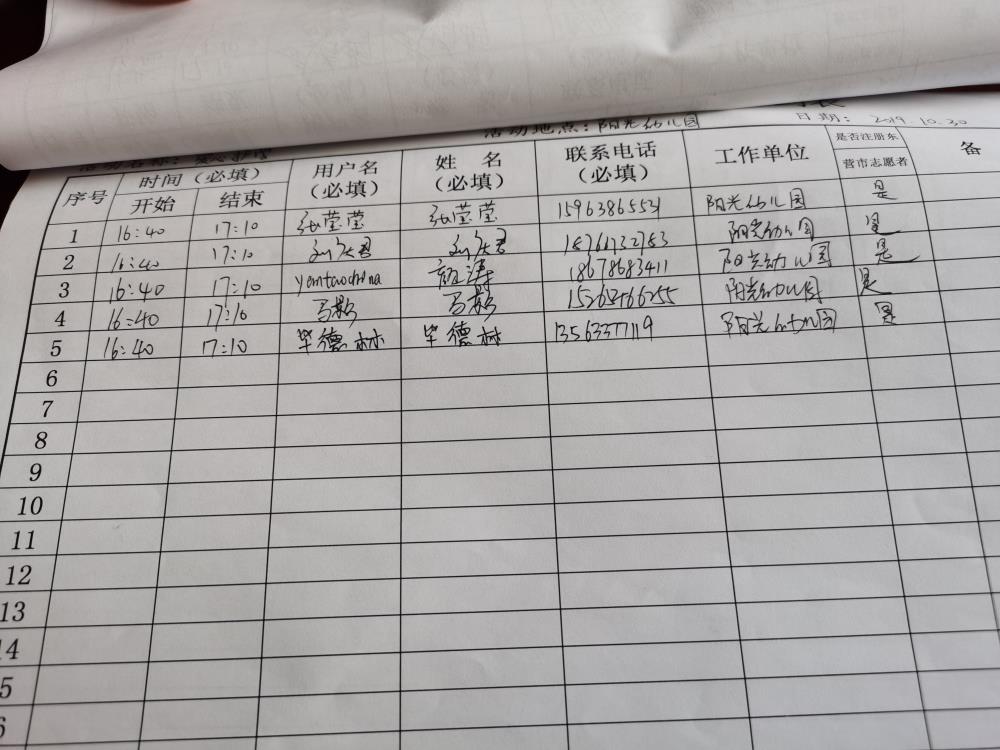 活动地点：阳光幼儿园 日期：2019.10.30
序号 时间（必填） 用户名（必填） 姓 名（必填） 联系电话（必填） 工作单位 是否注册东营市志愿者 备
开始 结束
1 16:40 17:10 张莹莹 张莹莹 15963865531 阳光幼儿园 是
2 16:40 17:10 18761732783 阳光幼儿园 是
3 16:40 17:10 yantaochina 18678683411 阳光幼儿园 是
4 16:40 17:10 马彩 马彩 阳光幼儿园 是
5 16:40 17:10 毕德林 毕德林 13563377119 阳光幼儿园 是
6
7
8
9
10
11
12
13